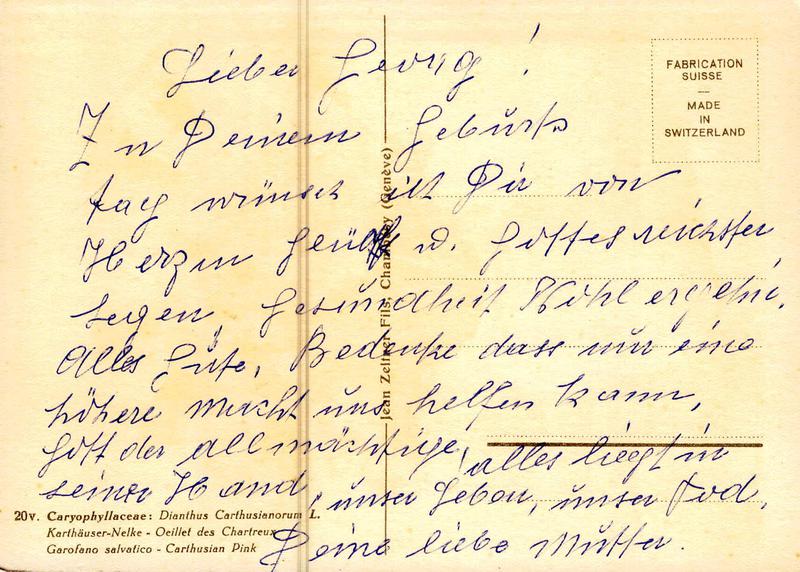 Lieber Georg!
Zu Deinem Geburts
tag wünsch ich Dir von
Herzen Glück u. Gottes reichsten
Segen, Gesundheit, Wohlergehn,
Alles Gute, Bedenke dass nur eine
höhere Macht uns helfen kann,
Gott der allmächtige, alles liegt in
seiner Hand, unser Leben, unser Tod.
Deine liebe Mutter.
FABRICATION
SUISSE
—
MADE
IN
SWITZERLAND
Jean Zeltner Fils, Chambésy (Genève)
20v. Caryophyllaceae: Dianthus Carthusianorum L.
Karthäuser-Nelke - Oeillet des Chartreux
Garofano salvatico - Carthusian Pink